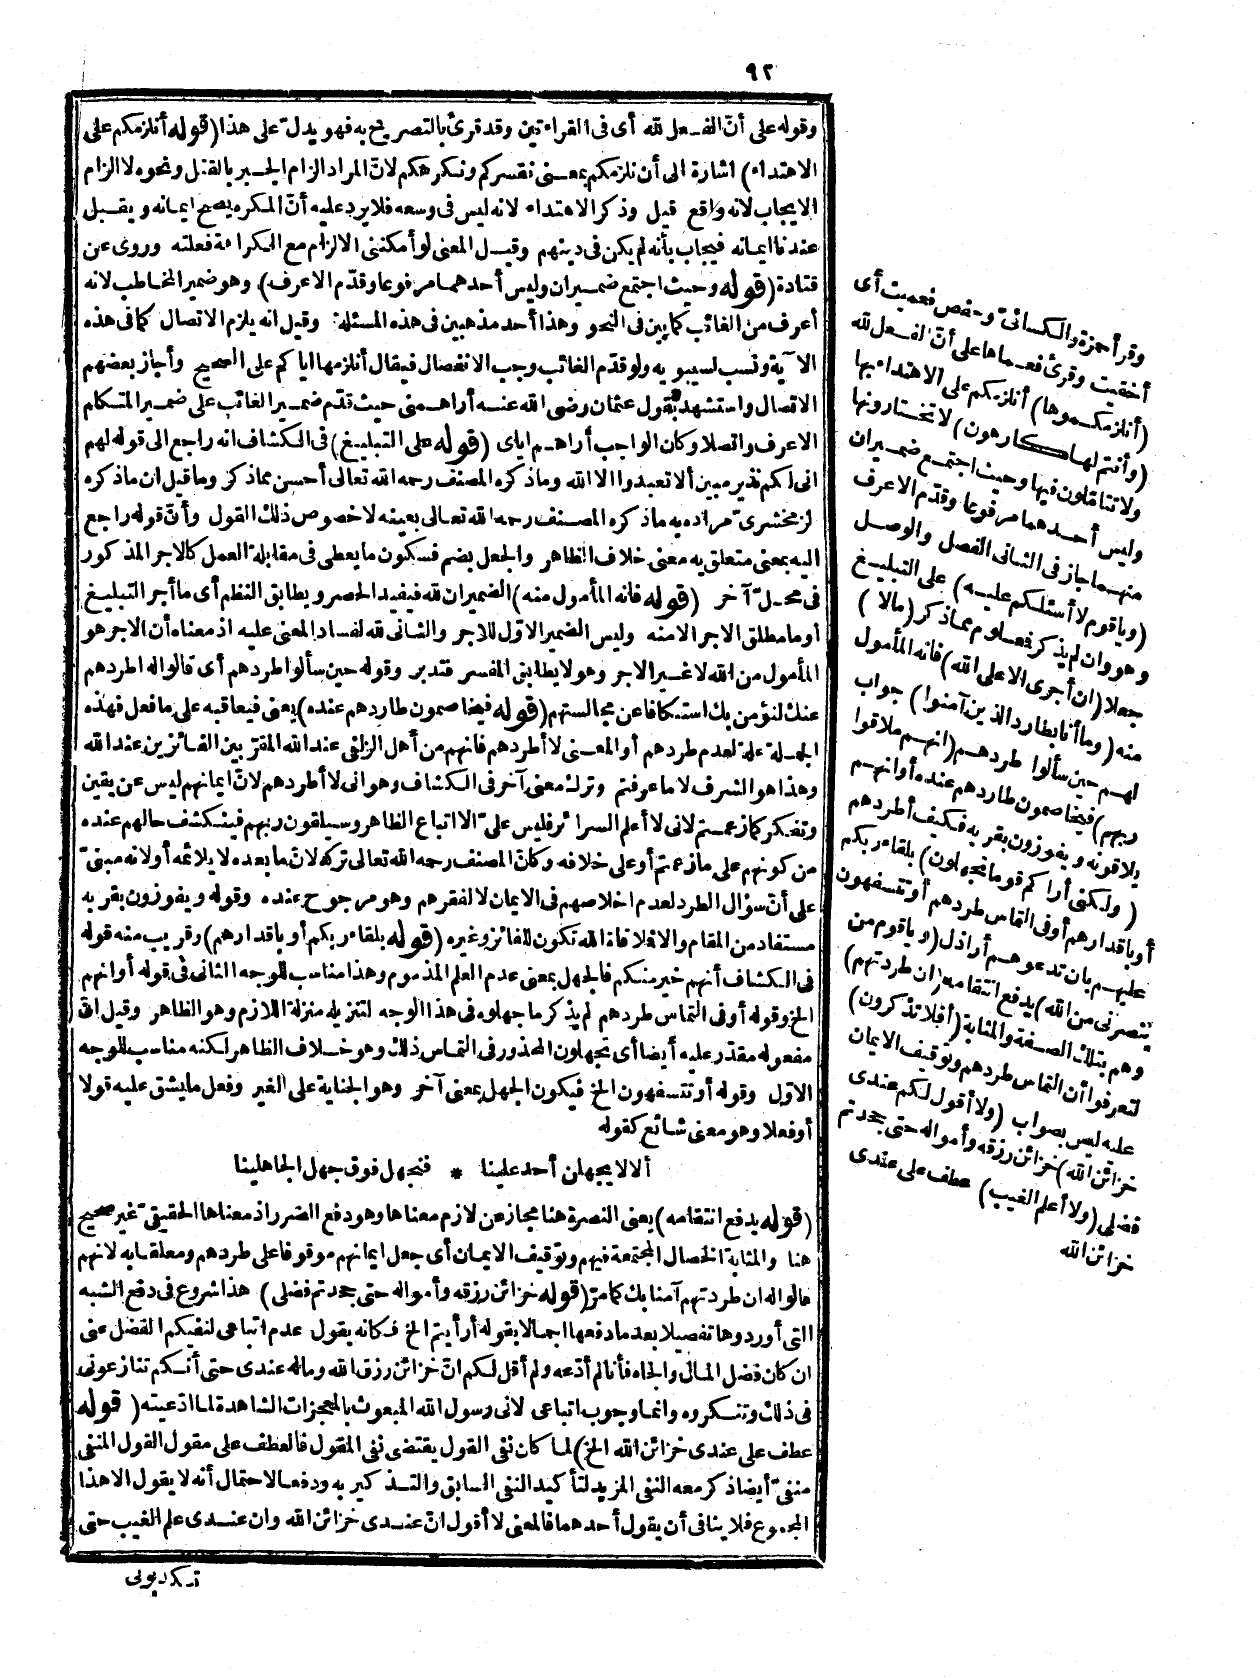 ٩٢
وقوله على أنّ الفعل لله أى فى القراءتين وقد قرئ بالتصريح به فهو يدلّ على هذا (قوله أنلزمكم على
الاهتداء) اشارة الى أن نلزمكم بمعنى نقسركم ونكرهكم لانّ المراد الزام الجبر بالقتل ونحوه لا الزام
الايجاب لانه واقع قيل وذكر الاهتداء لانه ليس فى وسعه فلا يرد عليه أنّ المكره يصح ايمانه ويقبل
عندنا ايمانه فيجاب بأنه لم يكن فى دينهم وقيل المعنى لو أمكننى الالزام مع الكراهة فعلته وروى عن
قتادة (قوله وحيث اجتمع ضميران وليس أحدهما مرفوعا وقدّم الاعرف) وهو ضمير المخاطب لانه
أعرف من الغائب كما بين فى النحو وهذا أحد مذهبين فى هذه المسئلة وقيل انه يلزم الاتصال كما فى هذه
الآية ونسب لسيبويه ولو قدّم الغائب وجب الانفصال فيقال أنلزمها اياكم على الصحيح وأجاز بعضهم
الاتصال واستشهد بقول عثمان رضى الله عنه أراهمنى حيث تقدّم ضمير الغائب على ضمير المتكلم
الاعرف واتصلا وكان الواجب أراهم اياى (قوله على التبليغ) فى الكشاف انه راجع الى قوله لهم
انى لكم نذير مبين ألا تعبدوا الا الله وما ذكره المصنف رحمه الله تعالى أحسن مما ذكر وما قيل ان ما ذكره
الزمخشرىّ مراده به ما ذكره المصنف رحمه الله تعالى بعينه لا خصوص ذلك القول وأنّ قوله راجع
اليه بمعنى متعلق به معنى خلاف الظاهر والجعل بضم فسكون ما يعطى فى مقابلة العمل كالاجر المذكور
فى محلّ آخر (قوله فانه المأمول منه) الضميران لله فيفيد الحصر ويطابق النظم أى ما أجر التبليغ
أو ما مطلق الاجر الا منه وليس الضمير الاوّل للاجر والثانى لله لفساد المعنى عليه اذ معناه أن الاجر هو
المأمول من الله لا غير الاجر وهو لا يطابق المفسر فتدبر وقوله حين سألوا طردهم أى قالوا له اطردهم
عنك لنؤمن بك استنكافا عن مجالستهم (قوله فيخاصمون طاردهم عنده) يعنى فيعاقبه على ما فعل فهذه
الجملة علة لعدم طردهم أو المعنى لا أطردهم فانهم من أهل الزلفى عند الله المقرّبين الفائزين عند الله
وهذا هو الشرف لا ما عرفتم وترك معنى آخر فى الكشاف وهو انى لا أطردهم لانّ ايمانهم ليس عن يقين
وتفكر كما زعمتم لانى لا أعلم السرائر فليس علىّ الا اتباع الظاهر وسيلقون ربهم فينكشف حالهم عنده
من كونهم على ما زعمتم أو على خلافه وكانّ المصنف رحمه الله تعالى تركه لانّ ما بعده لا يلائمه أو لانه مبنىّ
على أنّ سؤال الطرد لعدم اخلاصهم فى الايمان لا لفقرهم وهو مرجوح عنده وقوله ويفوزون بقربه
مستفاد من المقام والا فملاقاة الله تكون للفائز وغيره (قوله بلقاء ربكم أو بأقدارهم) وقريب منه قوله
فى الكشاف أنهم خير منكم فالجهل بمعنى عدم العلم المذموم وهذا مناسب للوجه الثانى فى قوله أو انهم
الخ وقوله أو فى التماس طردهم لم يذكر ما جهلوه فى هذا الوجه لتنزيله منزلة اللازم وهو الظاهر وقيل انّ
مفعوله مقدّر عليه أيضا أى تجهلون المحذور فى التماس ذلك وهو خلاف الظاهر لكنه مناسب للوجه
الاوّل وقوله أو تتسفهون الخ فيكون الجهل بمعنى آخر وهو الجناية على الغير وفعل ما يشق عليه قولا
أو فعلا وهو معنى شائع كقوله
ألا لا يجهلن أحد علينا * فنجهل فوق جهل الجاهلينا
(قوله يدفع انتقامه) يعنى النصرة هنا مجاز عن لازم معناها وهو دفع الضرر اذ معناها الحقيقىّ غير صحيح
هنا والمثابة الخصال المجتمعة فيهم وتوقيف الايمان أى جعل ايمانهم موقوفا على طردهم ومعلقا به لانهم
قالوا له ان طردتهم آمنا بك كما مرّ (قوله خزائن رزقه وأمواله حتى جحدتم فضلى) هذا شروع فى دفع الشبه
التى أوردوها تفصيلا بعد ما دفعها اجمالا بقوله أرأيتم الخ فكانه يقول عدم اتباعى لنفيكم الفضل عنى
ان كان فضل المال والجاه فأنا لم أدّعه ولم أقل لكم انّ خزائن رزق الله وماله عندى حتى أنكم تنازعونى
فى ذلك وتنكروه وانما وجوب اتباعى لانى رسول الله المبعوث بالمعجزات الشاهدة لما ادّعيته (قوله
عطف على عندى خزائن الله الخ) لما كان نفى القول يقتضى نفى المقول فالعطف على مقول القول المنفى
منفىّ أيضا ذكر معه النفى المزيد لتأكيد النفى السابق والتذكير به ودفعا لاحتمال أنه لا يقول الا هذا
المجموع فلا ينافى أن يقول أحدهما فالمعنى لا أقول انّ عندى خزائن الله وان عندى علم الغيب حتى
تكذبونى
وقرأ حمزة والكسائىّ وحفص فعميت أى
أخفيت وقرئ فعماها على أنّ الفعل لله
(أنلزمكموها) أنلزمكم على الاهتداء بها
(وأنتم لها كارهون) لا تختارونها
ولا تتأملون فيها وحيث اجتمع ضميران
وليس أحدهما مرفوعا وقدّم الاعرف
منهما جاز فى الثانى الفصل والوصل
(ويا قوم لا أسئلكم عليه) على التبليغ
وهو وان لم يذكر فمعلوم مما ذكر (مالا)
جعلا (ان أجرى الا على الله) فانه المأمول
منه (وما أنا بطارد الذين آمنوا) جواب
لهم حين سألوا طردهم (انهم ملاقوا
ربهم) فيخاصمون طاردهم عنده أو انهم
يلاقونه ويفوزون بقربه فكيف أطردهم
(ولكنى أراكم قوما تجهلون) بلقاء ربكم
أو بأقدارهم أو فى التماس طردهم أو تتسفهون
عليهم بان تدعوهم أراذل (ويا قوم من
ينصرنى من الله) يدفع انتقامه (ان طردتهم)
وهم بتلك الصفة والمثابة (أفلا تذكرون)
لتعرفوا أن التماس طردهم وتوقيف الايمان
عليه ليس بصواب (ولا أقول لكم عندى
خزائن الله) خزائن رزقه وأمواله حتى جحدتم
فضلى (ولا أعلم الغيب) عطف على عندى
خزائن الله